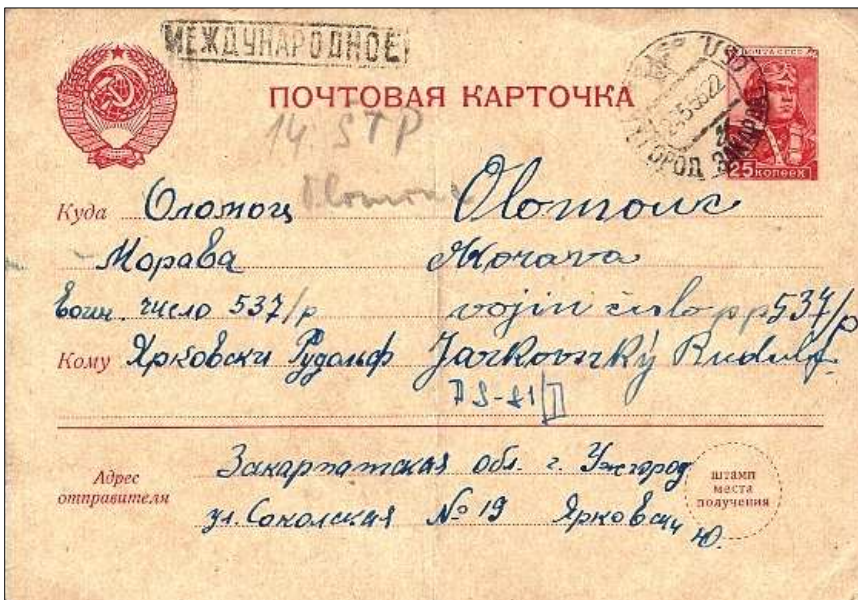 МЕЖДУНАРОДНОЕ
ПОЧТА СССР
ПОЧТОВАЯ КАРТОЧКА
УЖГОРОД
25 КОПЕЕК
14. STP
Olomouc
Куда Оломоц Olomouc
Морава Morava
Воин. число 537/р vojin číslo pp 537/p
Кому Ярковски Рудольф Jarkovský Rudolf
Адрес отправителя
Закарпатская обл. г. Ужгород
ул. Соколская № 19 Ярковски Ю.
штамп
места
получения